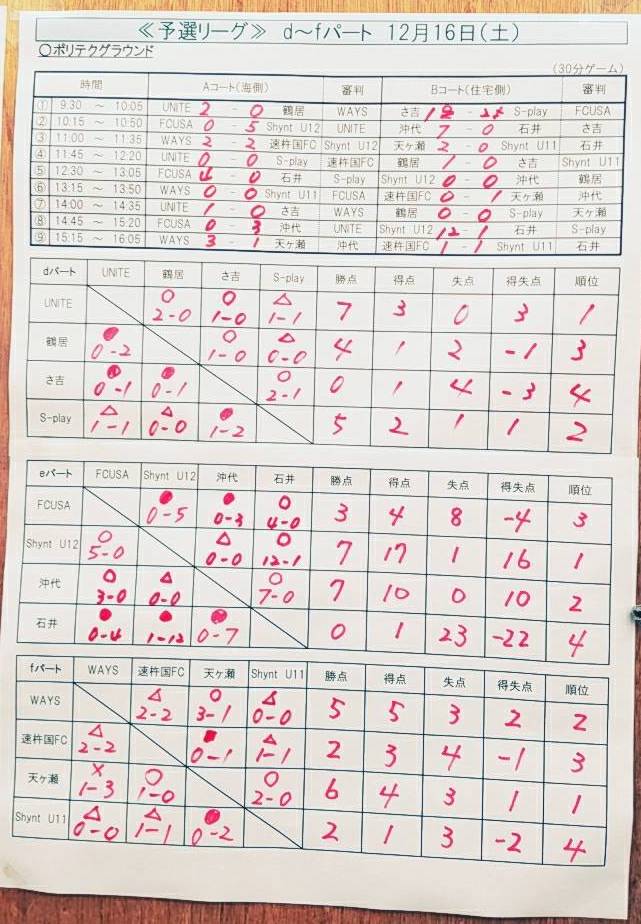 ≪予選リーグ≫ d～fパート 12月16日(土)
〇ポリテクグラウンド
(30分ゲーム)
時間 Aコート(海側) 審判 Bコート(住宅側) 審判
① 9:30 ～ 10:05 UNITE 2 - 0 鶴居 WAYS さ吉 1 - 2 S-play FCUSA
② 10:15 ～ 10:50 FCUSA 0 - 5 Shynt U12 UNITE 沖代 7 - 0 石井 さ吉
③ 11:00 ～ 11:35 WAYS 2 - 2 速杵国FC Shynt U12 天ヶ瀬 2 - 0 Shynt U11 石井
④ 11:45 ～ 12:20 UNITE 0 - 0 S-play 速杵国FC 鶴居 1 - 0 さ吉 Shynt U11
⑤ 12:30 ～ 13:05 FCUSA 4 - 0 石井 S-play Shynt U12 0 - 0 沖代 鶴居
⑥ 13:15 ～ 13:50 WAYS 0 - 0 Shynt U11 FCUSA 速杵国FC 0 - 1 天ヶ瀬 沖代
⑦ 14:00 ～ 14:35 UNITE 1 - 0 さ吉 WAYS 鶴居 0 - 0 S-play 天ヶ瀬
⑧ 14:45 ～ 15:20 FCUSA 0 - 3 沖代 UNITE Shynt U12 12 - 1 石井 S-play
⑨ 15:15 ～ 16:05 WAYS 3 - 1 天ヶ瀬 沖代 速杵国FC 1 - 1 Shynt U11 石井
dパート UNITE 鶴居 さ吉 S-play 勝点 得点 失点 得失点 順位
UNITE ○ 2-0 ○ 1-0 △ 1-1 7 3 0 3 1
鶴居 ● 0-2 ○ 1-0 △ 0-0 4 1 2 -1 3
さ吉 ● 0-1 ● 0-1 ○ 2-1 0 1 4 -3 4
S-play △ 1-1 △ 0-0 ● 1-2 5 2 1 1 2
eパート FCUSA Shynt U12 沖代 石井 勝点 得点 失点 得失点 順位
FCUSA ● 0-5 ● 0-3 ○ 4-0 3 4 8 -4 3
Shynt U12 ○ 5-0 △ 0-0 ○ 12-1 7 17 1 16 1
沖代 ○ 3-0 △ 0-0 ○ 7-0 7 10 0 10 2
石井 ● 0-4 ● 1-12 ● 0-7 0 1 23 -22 4
fパート WAYS 速杵国FC 天ヶ瀬 Shynt U11 勝点 得点 失点 得失点 順位
WAYS △ 2-2 ○ 3-1 △ 0-0 5 5 3 2 2
速杵国FC △ 2-2 ● 0-1 △ 1-1 2 3 4 -1 3
天ヶ瀬 × 1-3 ○ 1-0 ○ 2-0 6 4 3 1 1
Shynt U11 △ 0-0 △ 1-1 ● 0-2 2 1 3 -2 4